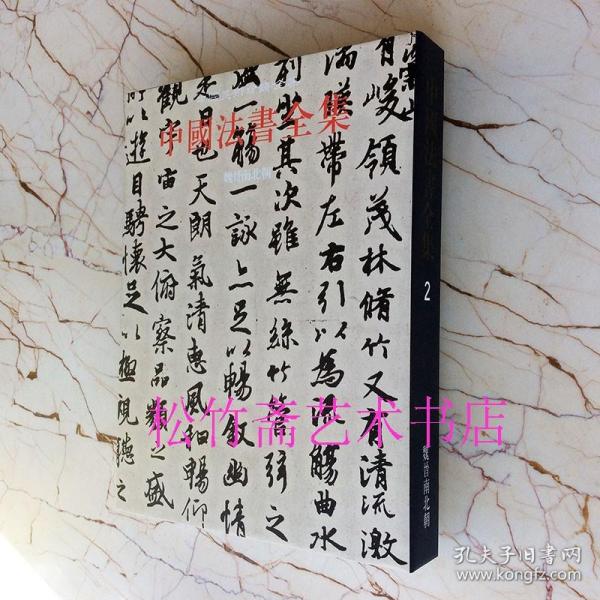 中國法書全集
魏晉南北朝
有峻領茂林脩竹又有清流激
湍暎帶左右引以為流觴曲水
列坐其次雖無絲竹管弦之
盛一觴一詠亦足以暢敘幽情
是日也天朗氣清惠風和暢仰
觀宇宙之大俯察品類之盛
所以遊目騁懷足以極視聽之
全集
2
魏晉南北朝
松竹斋艺术书店
孔夫子旧书网
www.kongfz.com